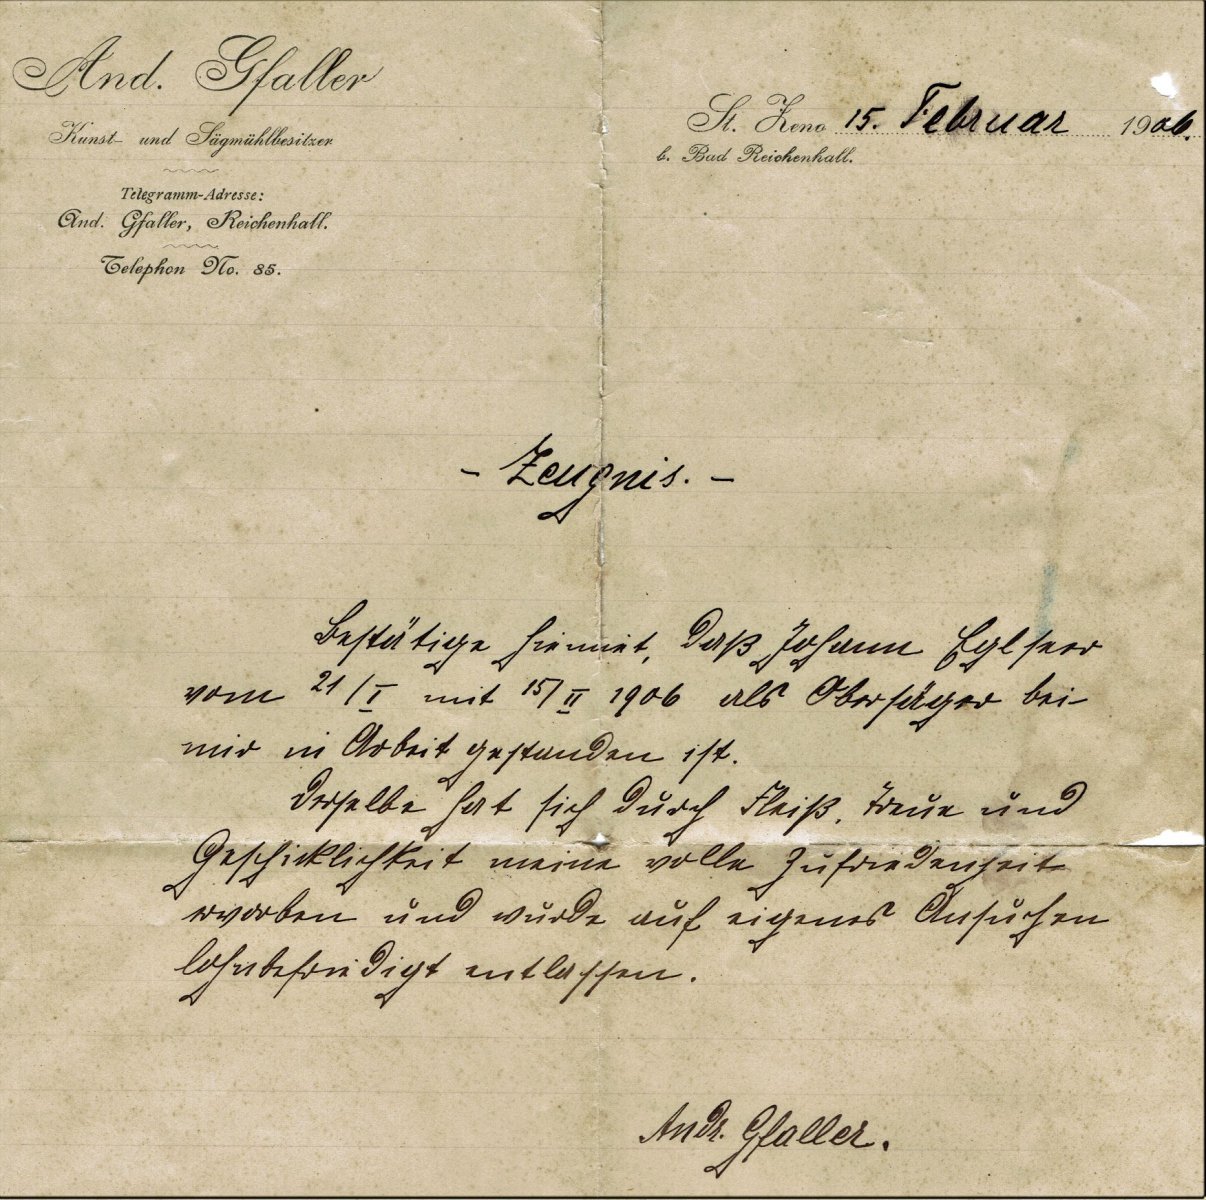 And. Gfaller
Kunst- und Sägmühlbesitzer
Telegramm-Adresse:
And. Gfaller, Reichenhall.
Telephon No. 85.
St. Zeno 15. Februar 1906.
b. Bad Reichenhall.
- Zeugnis. -
Bestätige hiermit, daß Johann Eglseer
vom 21/I mit 15/II 1906 als Obersäger bei
mir in Arbeit gestanden ist.
Derselbe hat sich durch Fleiß, Treue und
Geschicklichkeit meine volle Zufriedenheit
erworben und wurde auf eigenes Ansuchen
lohnbefriedigt entlassen.
Andr. Gfaller.